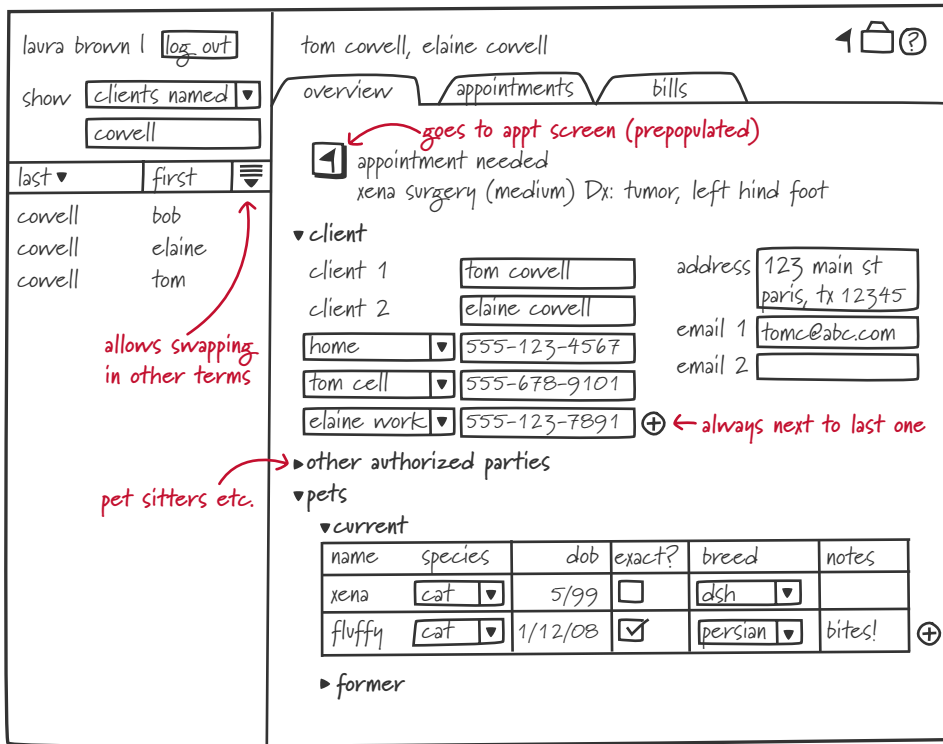 laura brown | log out
show clients named
cowell
last first
cowell bob
cowell elaine
cowell tom
allows swapping
in other terms
pet sitters etc.
tom cowell, elaine cowell
?
overview appointments bills
goes to appt screen (prepopulated)
appointment needed
xena surgery (medium) Dx: tumor, left hind foot
client
client 1 tom cowell
client 2 elaine cowell
home 555-123-4567
tom cell 555-678-9101
elaine work 555-123-7891
address 123 main st
paris, tx 12345
email 1 tomc@abc.com
email 2
always next to last one
other authorized parties
pets
current
name species dob exact? breed notes
xena cat 5/99 dsh
fluffy cat 1/12/08 persian bites!
former